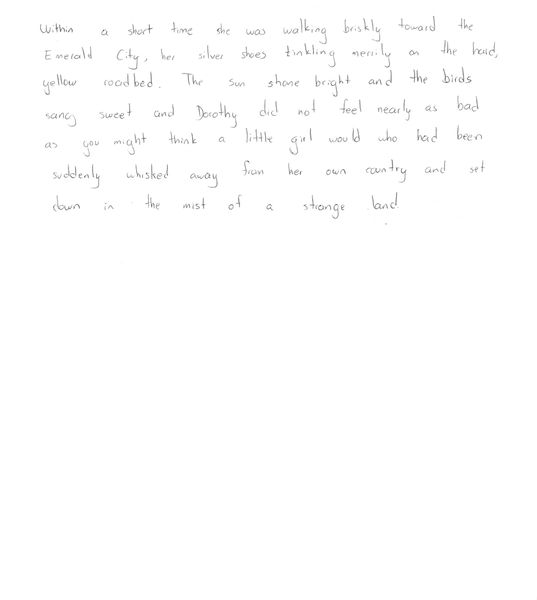 Within a short time she was walking briskly toward the
Emerald City, her silver shoes tinkling merrily on the hard,
yellow roadbed. The sun shone bright and the birds
sang sweet and Dorothy did not feel nearly as bad
as you might think a little girl would who had been
suddenly whisked away from her own country and set
down in the mist of a strange land.